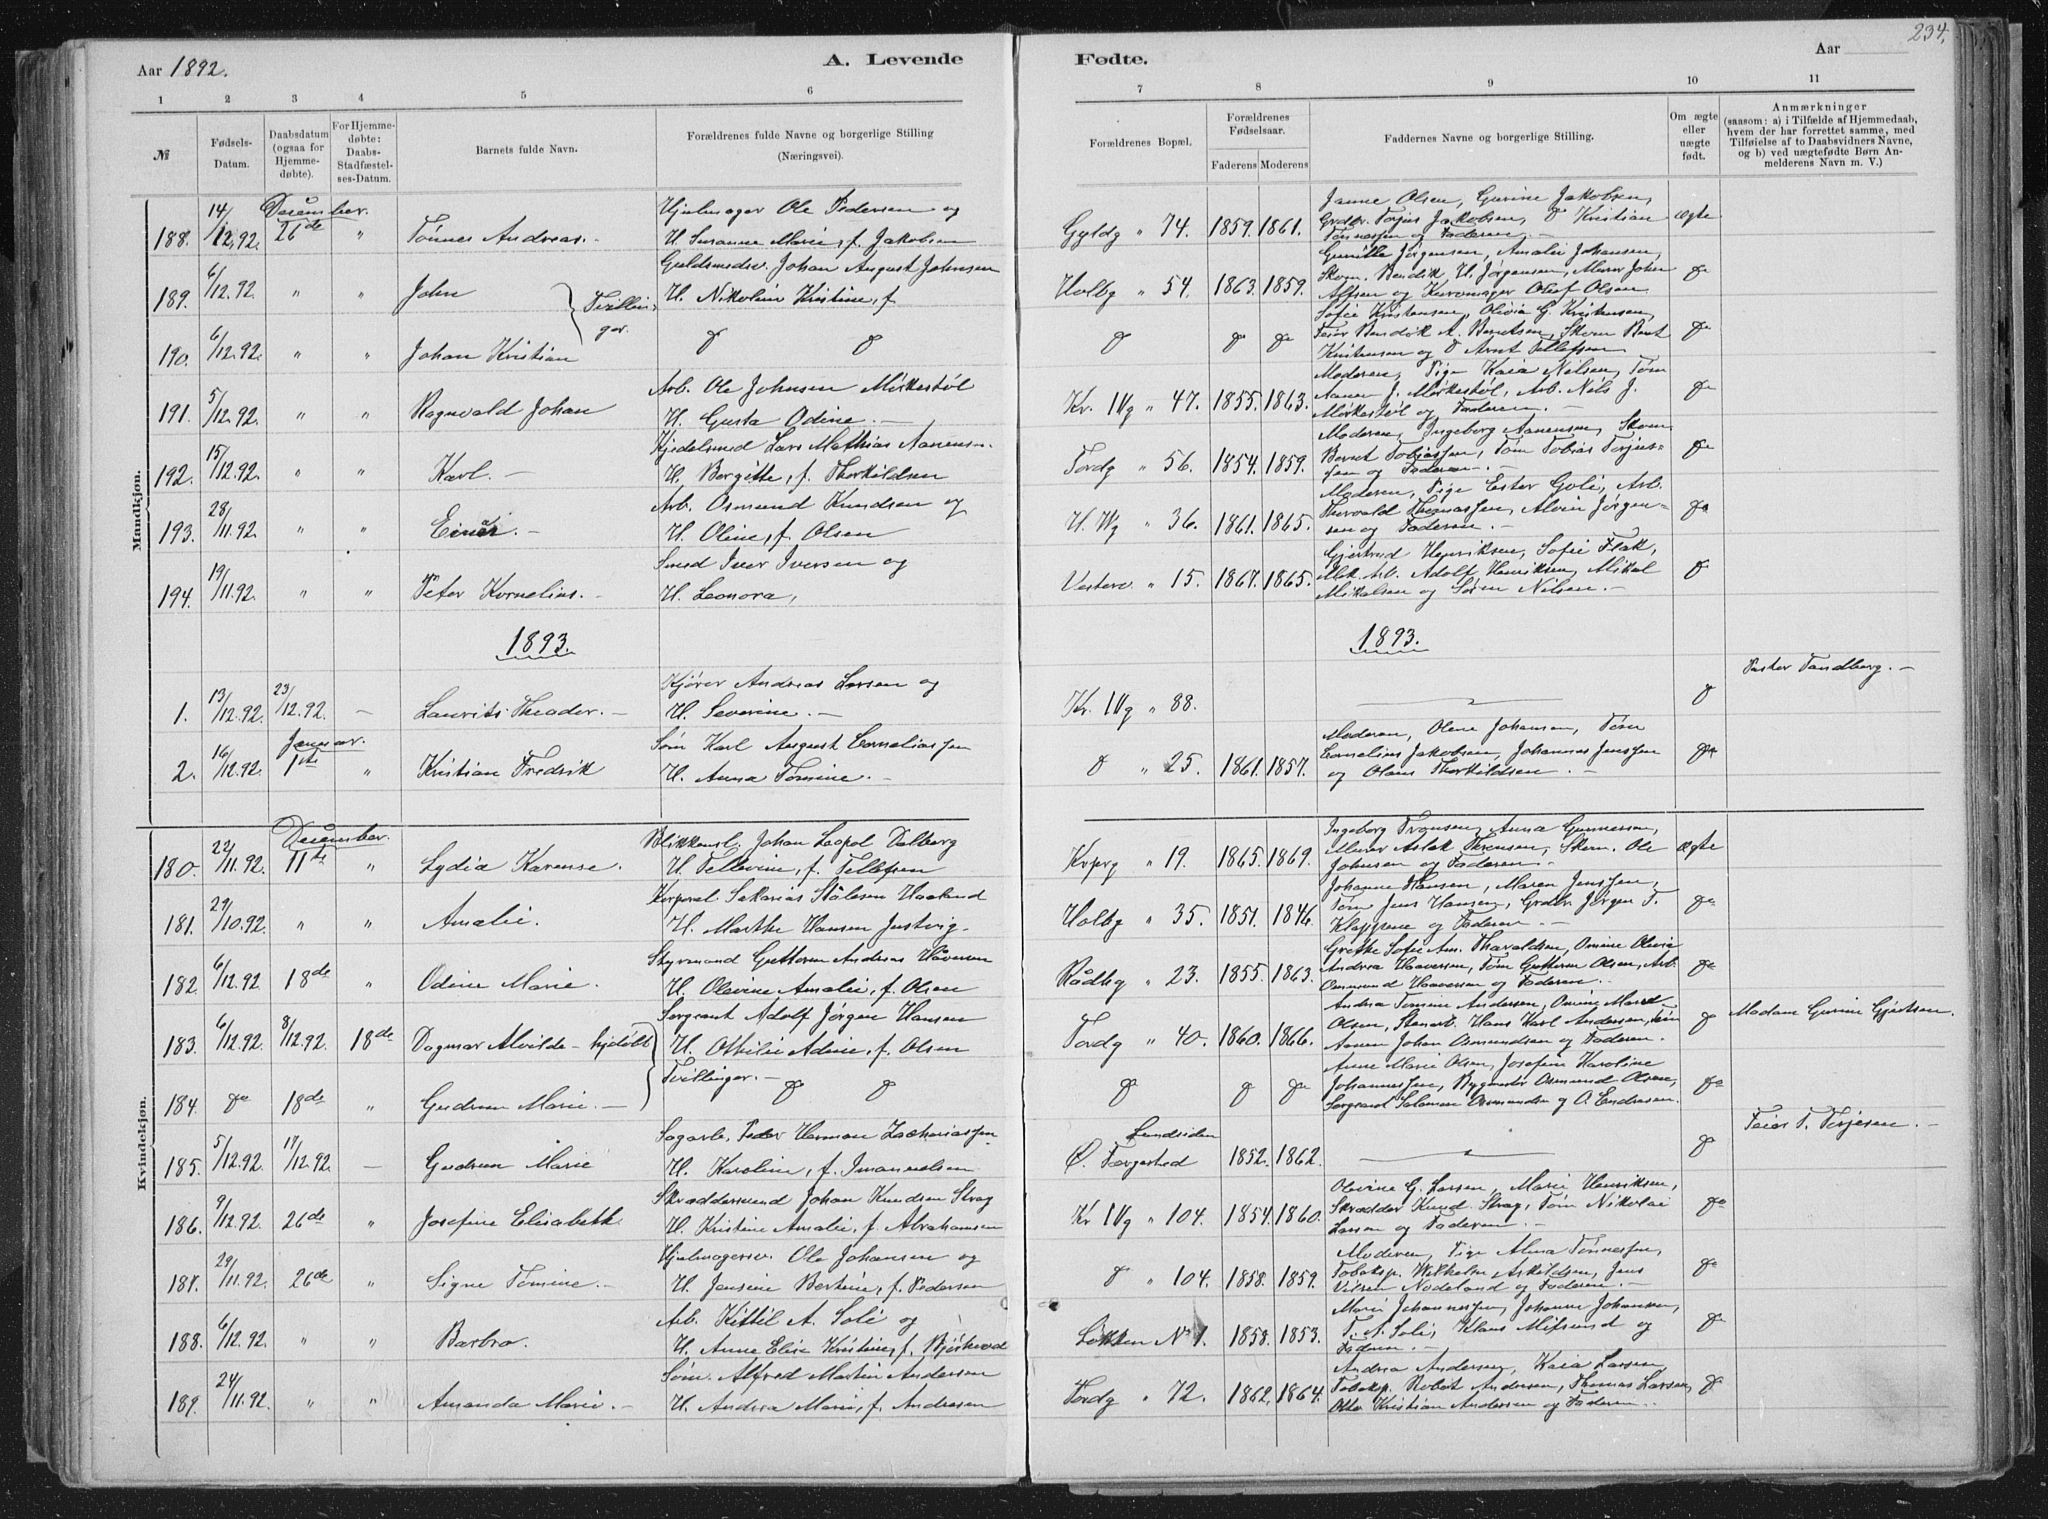 Aar 1892.
A. Levende
1 2 3 4 5 6
№
Fødsels-Datum.
Daabsdatum (ogsaa for Hjemme-døbte).
For Hjemme-døbte: Daabs-Stadfæstel-ses-Datum.
Barnets fulde Navn.
Forældrenes fulde Navne og borgerlige Stilling (Næringsvei).
Mandkjøn.
December.
188. 14/12.92. 26de " Tønnes Andreas. Hjulmager Ole Pedersen og
H. Susanne Marie, f. Jakobsen
189. 6/12.92. " " John Tvillinger. Guldsmedsv. Johan August Johnsen
H. Nikoline Kristine, f.
190. 6/12.92. " " Johan Kristian do do
191. 5/12.92. " " Ragnvald Johan Arb. Ole Johnsen Mørkestøl
H. Gusta Odine. —
192. 15/12.92. " " Karl. — Kjedelsmed Lars Mathias Aanensen
H. Bergitte, f. Thorkildsen
193. 28/11.92. " " Einar. — Arb. Osmund Knudsen og
H. Oline, f. Olsen
194. 19/11.92. " " Peter Kornelius. — Smed Iver Iversen og
H. Leonora,
1893.
1. 13/12.92. 23/12.92. — Laurits Theodor. — Kjører Andreas Larsen og
H. Severine. —
Januar.
2. 16/12.92. 1ste " Kristian Fredrik Tøm Karl August Corneliussen
H. Anna Tomine. —
Kvindekjøn.
December.
180. 22/11.92. 11te " Lydia Karense. Blikkensl. Johan Leopol Dalberg
H. Tellevine, f. Tellefsen
181. 29/10.92. " " Amalie. Korporal Sakarias Stålesen Haaland
H. Marthe Hansen Justvig.
182. 6/12.92 18de " Odine Marie. Styrmand Guttorm Andreas Håversen
H. Olevine Amalie, f. Olsen
183. 6/12.92. 8/12.92. 18de Dagmar Alvilde — hjdøbt Sergeant Adolf Jørgen Hansen
H. Ottilie Adine, f. Olsen
Tvillinger. —
184. do 18de " Gudrun Marie. — do do
185. 5/12.92. 17/12.92. — Gudrun Marie Sagarb. Peder Herman Zachariassen
H. Karoline, f. Imanuelsen
186. 9/12.92. 26de " Josefine Elisabeth. Skræddersvend Johan Knudsen Stray
H. Kristine Amalie, f. Abrahamsen
187. 29/11.92. 26de " Signe Tomine. — Hjulmagersv. Ole Johansen og
H. Jensine Bertine, f. Pedersen
188. 6/12.92. " " Barbro. Arb. Kittil A. Soli og
H. Anne Elise Kristine, f. Bjørkevad
189. 24/11.92. " " Amanda Marie. — Tøm. Alfred Martin Andersen
H. Andrea Marie, f. Andresen
234.
Fødte.
Aar
7 8 9 10 11
Forældrenes Bopæl.
Forældrenes Fødselsaar.
Faderens Moderens
Faddernes Navne og borgerlige Stilling.
Om ægte eller uægte født.
Anmærkninger
(saasom: a) i Tilfælde af Hjemmedaab, hvem der har forrettet samme, med Tilføielse af to Daabsvidners Navne, og b) ved uægtefødte Børn Anmelderens Navn m. V.)
Gyldg " 74. 1859. 1861. Janne Olsen, Gurine Jakobsen,
Grdbr. Terjus Jakobsen, do Kristian
Tønnessen og Faderen. — ægte
Holbg " 54. 1863. 1859. Gunille Jørgensen, Amalie Johansen,
Skom. Bendik H. Jørgensen, Murer John
Alfsen og Kurvmager Oluf Olsen do
do do do Sofie Kristensen, Olivia G. Kristensen,
Feier Bendik A. Berntsen, Skom Bent
Kristensen og do Arnt Tellefsen do
Kr. IVg " 47. 1855. 1863. Moderen, Pige Kaia Nielsen, Tøm
Aanen J. Mørkestøl, Arb. Nels J.
Mørkestøl og Faderen. — do
Tordg " 56. 1854. 1859. Moderen, Ingeborg Aanensen, Skom
Berent Tobiassen, Tøm Tobias Terjus-
sen og Faderen. — do
H. Wg " 36. 1861. 1865. Moderen, Pige Ester Goli, Arb.
Thorvald Thomassen, Alvin Jørgen-
sen og Faderen. — do
Vesterv " 15. 1867. 1865. Gjertrud Henriksen, Sofie Flak,
Mek. Arb. Adolf Henriksen, Mikal
Mikalsen og Søren Nilsen. — do
1893.
Kr. IVg " 88. — do Pastor Tandberg. —
do " 25. 1861. 1857. Moderen, Olene Johansen, Tøm
Cornelius Jakobsen, Johannes Jenssen
og Olaus Thorkildsen. — do
Kvprg " 19. 1865. 1869. Ingeborg Tronsen, Anna Gunnersen,
Murer Aslak Thronsen, Skom. Ole
Johnsen og Faderen — ægte
Holbg " 35. 1851. 1846. Johanne Hansen, Maren Jenssen,
Tøm Jens Hansen, Grdbr Jørgen T.
Kleppene og Faderen. — do
Rådhg " 23. 1855. 1863. Grethe Sofie Am. Tharaldsen, Omine Olivia
Andrea Haaversen, Tøm Guttorm Olsen, Arb.
Osmund Haaversen og Faderen. do
Tordg " 40. 1860. 1866. Andrea Tomine Andersen, Omine Marie
Olsen, Stenarb. Hans Karl Andersen, tøm
Aanen Johan Osmundsen og Faderen. do Madam Gurine Gjertsen.
do do do Anne Marie Olsen, Josefine Karoline
Johannessen, Bygmester Osmund Olsen,
Sergeant Salomon Osmundsen og O. Endresen. do
Lundsiden
Ø. Færgested 1852. 1862. — do Feier T. Terjesen. —
Kr IVg " 104. 1854. 1860. Olevine G. Larsen, Marie Henriksen,
Skrædder Knud Stray, Tøm Nikolai
Larsen og Faderen. — do
do " 104. 1858. 1859. Moderen, Pige Alma Tønnessen,
Tobaksp. Wilhelm Askildsen, Jens
Nilsen Nodeland og Faderen. — do
Løkken N 1. 1858. 1853. Marie Johannessen, Johanne Johansen,
T. A. Soli, Klaus Mifsund og
Faderen. — do
Tordg " 72. 1862. 1864. Andrea Andersen, Kaia Larsen,
Tobaksp. Robert Andersen, Thomas Larsen,
Otto Kristian Andersen og Faderen. do